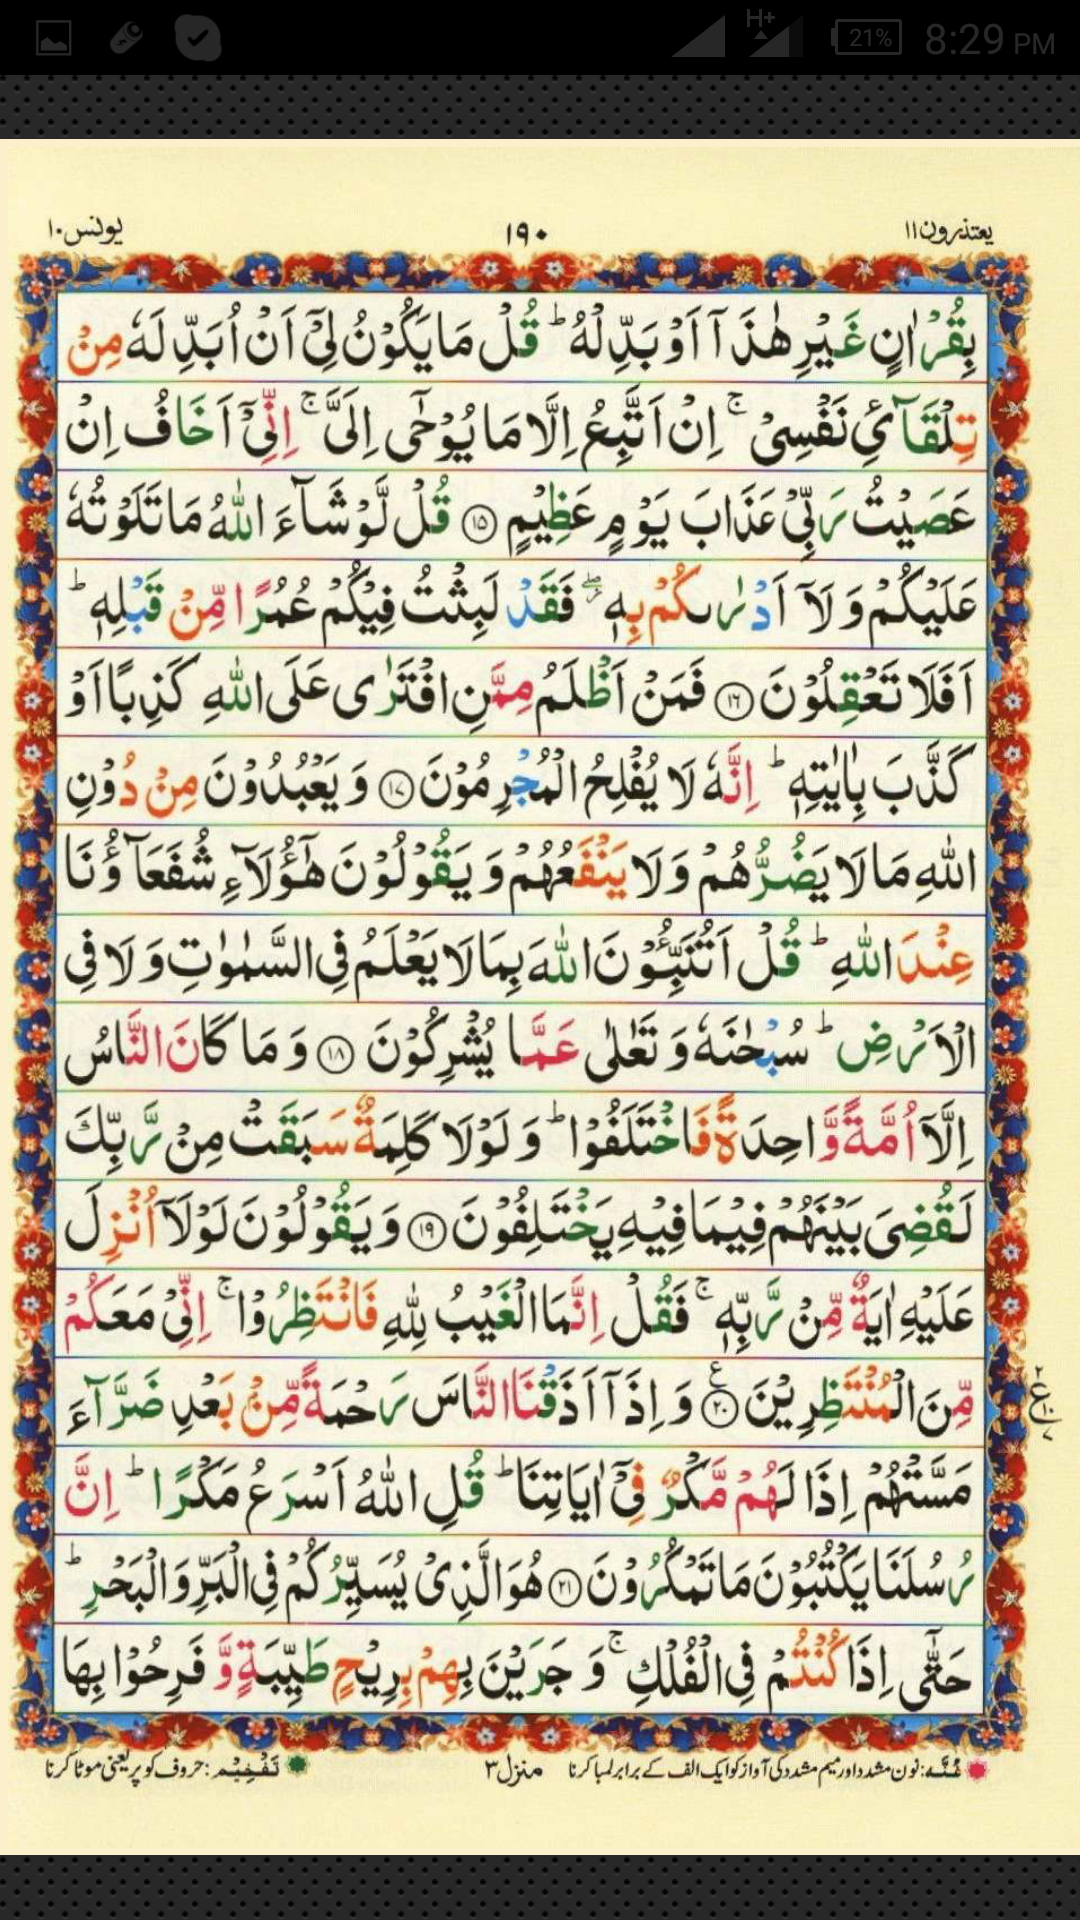 H+
21%
8:29 PM
یعتذرون۱۱
۱۹۰
یونس۱۰
بِقُرْاٰنٍ غَيْرِ هٰذَآ اَوْ بَدِّلْهُ ؕ قُلْ مَا يَكُوْنُ لِيْۤ اَنْ اُبَدِّلَهٗ مِنْ
تِلْقَآئِ نَفْسِيْ ۚ اِنْ اَتَّبِعُ اِلَّا مَا يُوْحٰۤى اِلَيَّ ۚ اِنِّيْۤ اَخَافُ اِنْ
عَصَيْتُ رَبِّيْ عَذَابَ يَوْمٍ عَظِيْمٍ ۱۵ قُلْ لَّوْ شَآءَ اللّٰهُ مَا تَلَوْتُهٗ
عَلَيْكُمْ وَ لَاۤ اَدْرٰىكُمْ بِهٖ ۖ فَقَدْ لَبِثْتُ فِيْكُمْ عُمُرًا مِّنْ قَبْلِهٖ ؕ
اَفَلَا تَعْقِلُوْنَ ۱۶ فَمَنْ اَظْلَمُ مِمَّنِ افْتَرٰى عَلَى اللّٰهِ كَذِبًا اَوْ
كَذَّبَ بِاٰيٰتِهٖ ؕ اِنَّهٗ لَا يُفْلِحُ الْمُجْرِمُوْنَ ۱۷ وَ يَعْبُدُوْنَ مِنْ دُوْنِ
اللّٰهِ مَا لَا يَضُرُّهُمْ وَ لَا يَنْفَعُهُمْ وَ يَقُوْلُوْنَ هٰۤؤُلَآءِ شُفَعَآؤُنَا
عِنْدَ اللّٰهِ ؕ قُلْ اَتُنَبِّـُٔوْنَ اللّٰهَ بِمَا لَا يَعْلَمُ فِي السَّمٰوٰتِ وَ لَا فِي
الْاَرْضِ ؕ سُبْحٰنَهٗ وَ تَعٰلٰى عَمَّا يُشْرِكُوْنَ ۱۸ وَ مَا كَانَ النَّاسُ
اِلَّاۤ اُمَّةً وَّاحِدَةً فَاخْتَلَفُوْا ؕ وَ لَوْ لَا كَلِمَةٌ سَبَقَتْ مِنْ رَّبِّكَ
لَقُضِيَ بَيْنَهُمْ فِيْمَا فِيْهِ يَخْتَلِفُوْنَ ۱۹ وَ يَقُوْلُوْنَ لَوْ لَاۤ اُنْزِلَ
عَلَيْهِ اٰيَةٌ مِّنْ رَّبِّهٖ ۚ فَقُلْ اِنَّمَا الْغَيْبُ لِلّٰهِ فَانْتَظِرُوْا ۚ اِنِّيْ مَعَكُمْ
مِّنَ الْمُنْتَظِرِيْنَ ۲۰ ع وَ اِذَاۤ اَذَقْنَا النَّاسَ رَحْمَةً مِّنْۢ بَعْدِ ضَرَّآءَ
۲ ع ۱۰ ۷
مَسَّتْهُمْ اِذَا لَهُمْ مَّكْرٌ فِيْۤ اٰيَاتِنَا ؕ قُلِ اللّٰهُ اَسْرَعُ مَكْرًا ؕ اِنَّ
رُسُلَنَا يَكْتُبُوْنَ مَا تَمْكُرُوْنَ ۲۱ هُوَ الَّذِيْ يُسَيِّرُكُمْ فِي الْبَرِّ وَ الْبَحْرِ ؕ
حَتّٰۤى اِذَا كُنْتُمْ فِي الْفُلْكِ ۚ وَ جَرَيْنَ بِهِمْ بِرِيْحٍ طَيِّبَةٍ وَّ فَرِحُوْا بِهَا
غُنَّہ: نون مشدد اور میم مشدد کی آواز کو ایک الف کے برابر لمبا کرنا
منزل۳
تَفْخِیْم: حروف کو پر یعنی موٹا کرنا